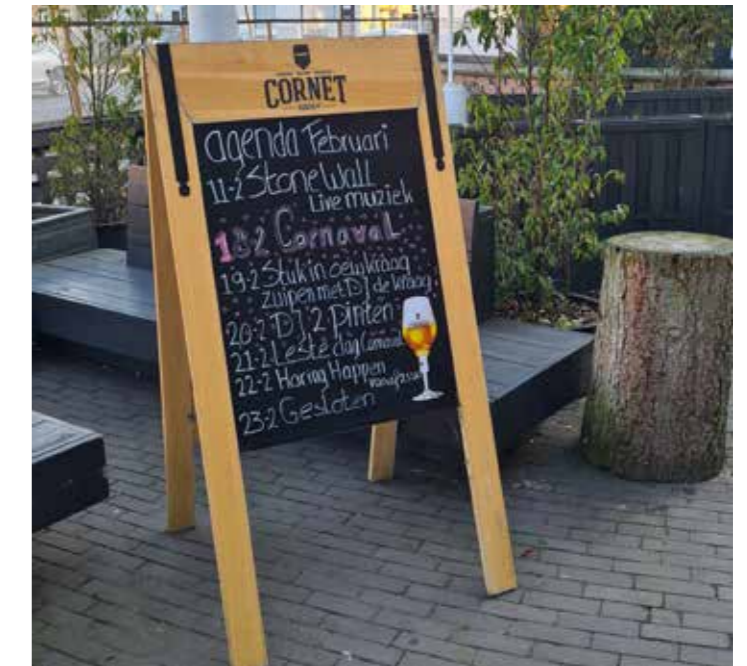 CORNET
agenda Februari
11-2 StoneWall
Live muziek
18-2 CarnavaL
19-2 Stuk in oew kraag
zuipen met DJ de kraag
20-2 DJ 2 Pinten
21-2 Leste dag Carnaval
22-2 Haring Happen
23-2 Gesloten